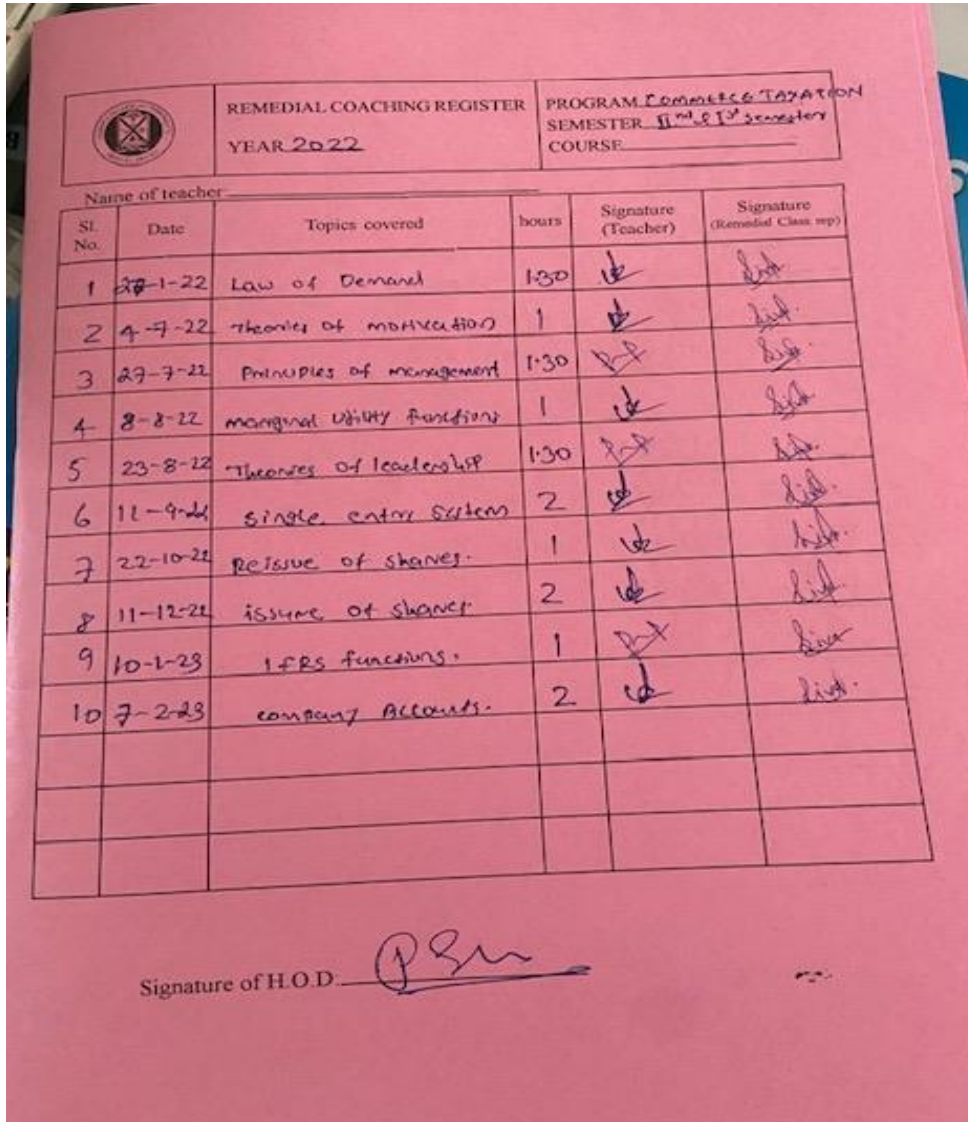 REMEDIAL COACHING REGISTER
YEAR 2022
PROGRAM COMMERCE TAXATION
SEMESTER IInd & Ist Semester
COURSE
Name of teacher
Sl. No. Date Topics covered hours Signature (Teacher) Signature (Remedial Class rep)
1 -1-22 Law of Demand 1·30
2 4-7-22 Theories of motivation 1
3 27-7-22 Principles of management 1·30
4 8-8-22 marginal Utility functions 1
5 23-8-22 Theories of leadership 1·30
6 single entry System 2
7 22-10-22 Reissue of shares. 1
8 11-12-22 issue of shares. 2
9 10-1-23 IFRS functions. 1
10 7-2-23 company Accounts. 2
Signature of H.O.D.